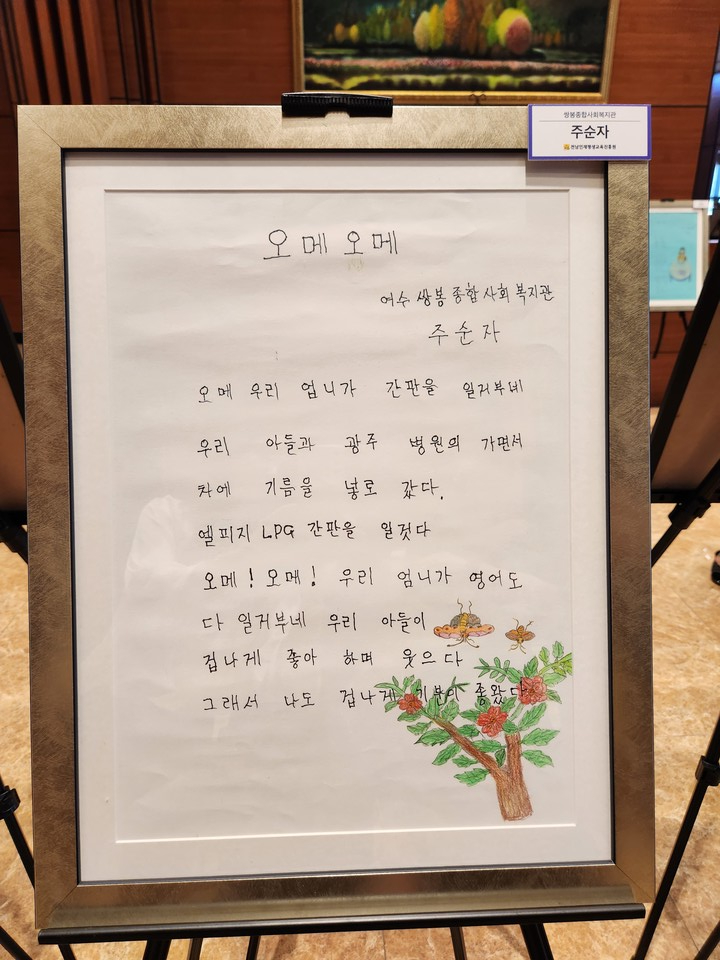 쌍봉종합사회복지관
주순자
전남인재평생교육진흥원
오메 오메
여수 쌍봉 종합 사회 복지관
주순자
오메 우리 업니가 간판을 일거부네
우리 아들과 광주 병원의 가면서
차에 기름을 넣로 갔다.
엘피지 LPG 간판을 일것다
오메! 오메! 우리 엄니가 영어도
다 일거부네 우리 아들이
겁나게 좋아 하며 웃으다
그래서 나도 겁나게 기분이 좋왔다